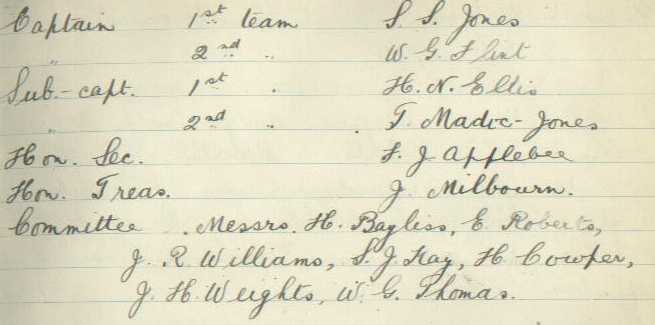 Captain 1st team S. S. Jones
" 2nd " W. G. Flint
Sub.-capt. 1st " H. N. Ellis
" 2nd " T. Madoc-Jones
Hon. Sec. F. J. Applebee
Hon. Treas. J. Milbourn.
Committee . Messrs. H. Bayliss, E. Roberts,
J. R. Williams, S. J. Kay, H. Cowper,
J. H. Weights, W. G. Thomas.